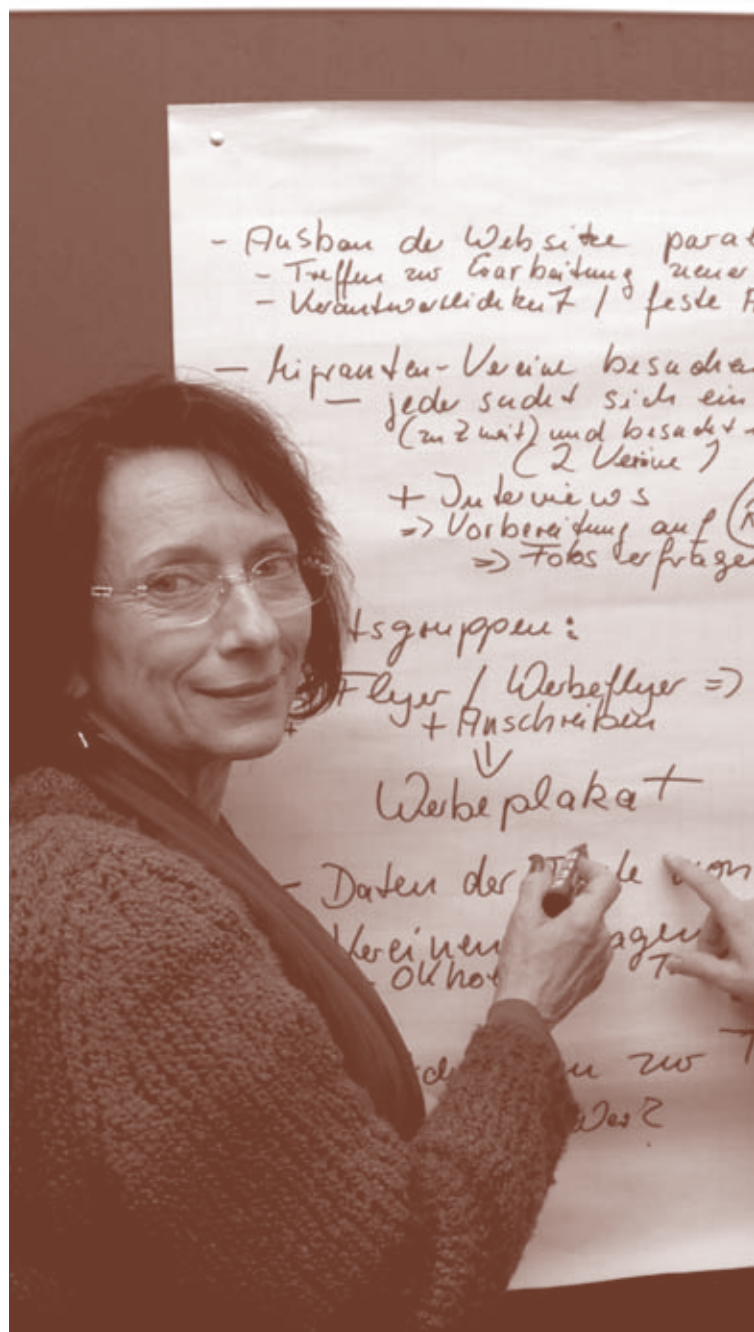 - Ausbau der Website
- Treffen zur Erarbeitung neuer
- Verantwortlichkeit / feste
- Migranten-Vereine besuchen
- jeder sucht sich ein
(zu zweit) und besucht
(2 Vereine)
+ Interviews
=> Vorbereitung auf
=> Fotos erfragen
tsgruppen:
Flyer / Werbeflyer =>
+ Anschreiben
Werbeplakat
- Daten der
Vereinen
zur
Wer?